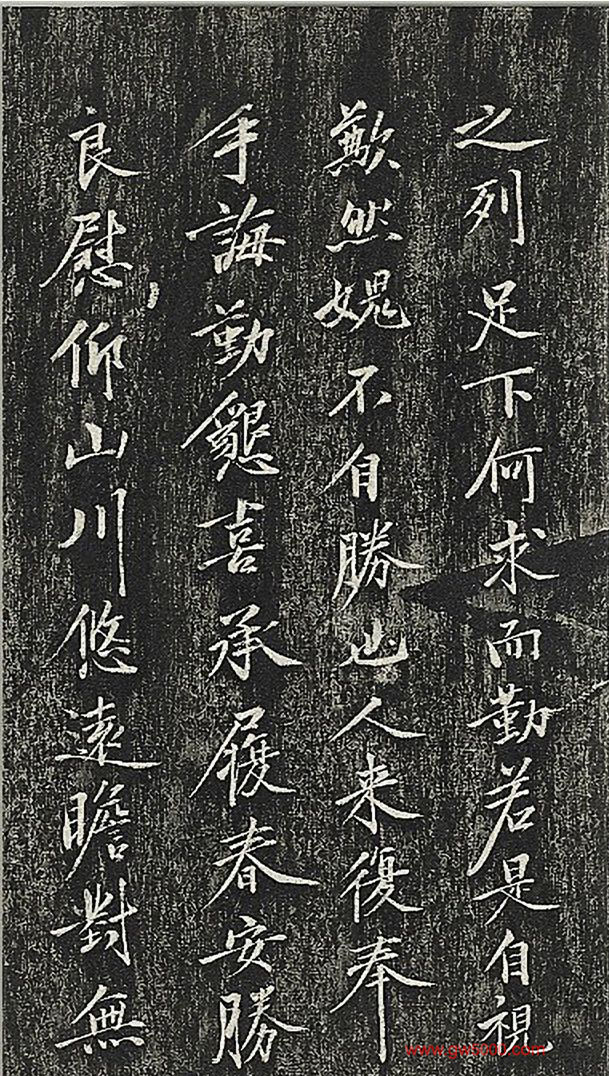 之列足下何求而勤若是自視
歉然媿不自勝山人来復奉
手誨勤懇喜承履春安勝
良慰仰山川悠遠瞻對無
www.gw5000.com